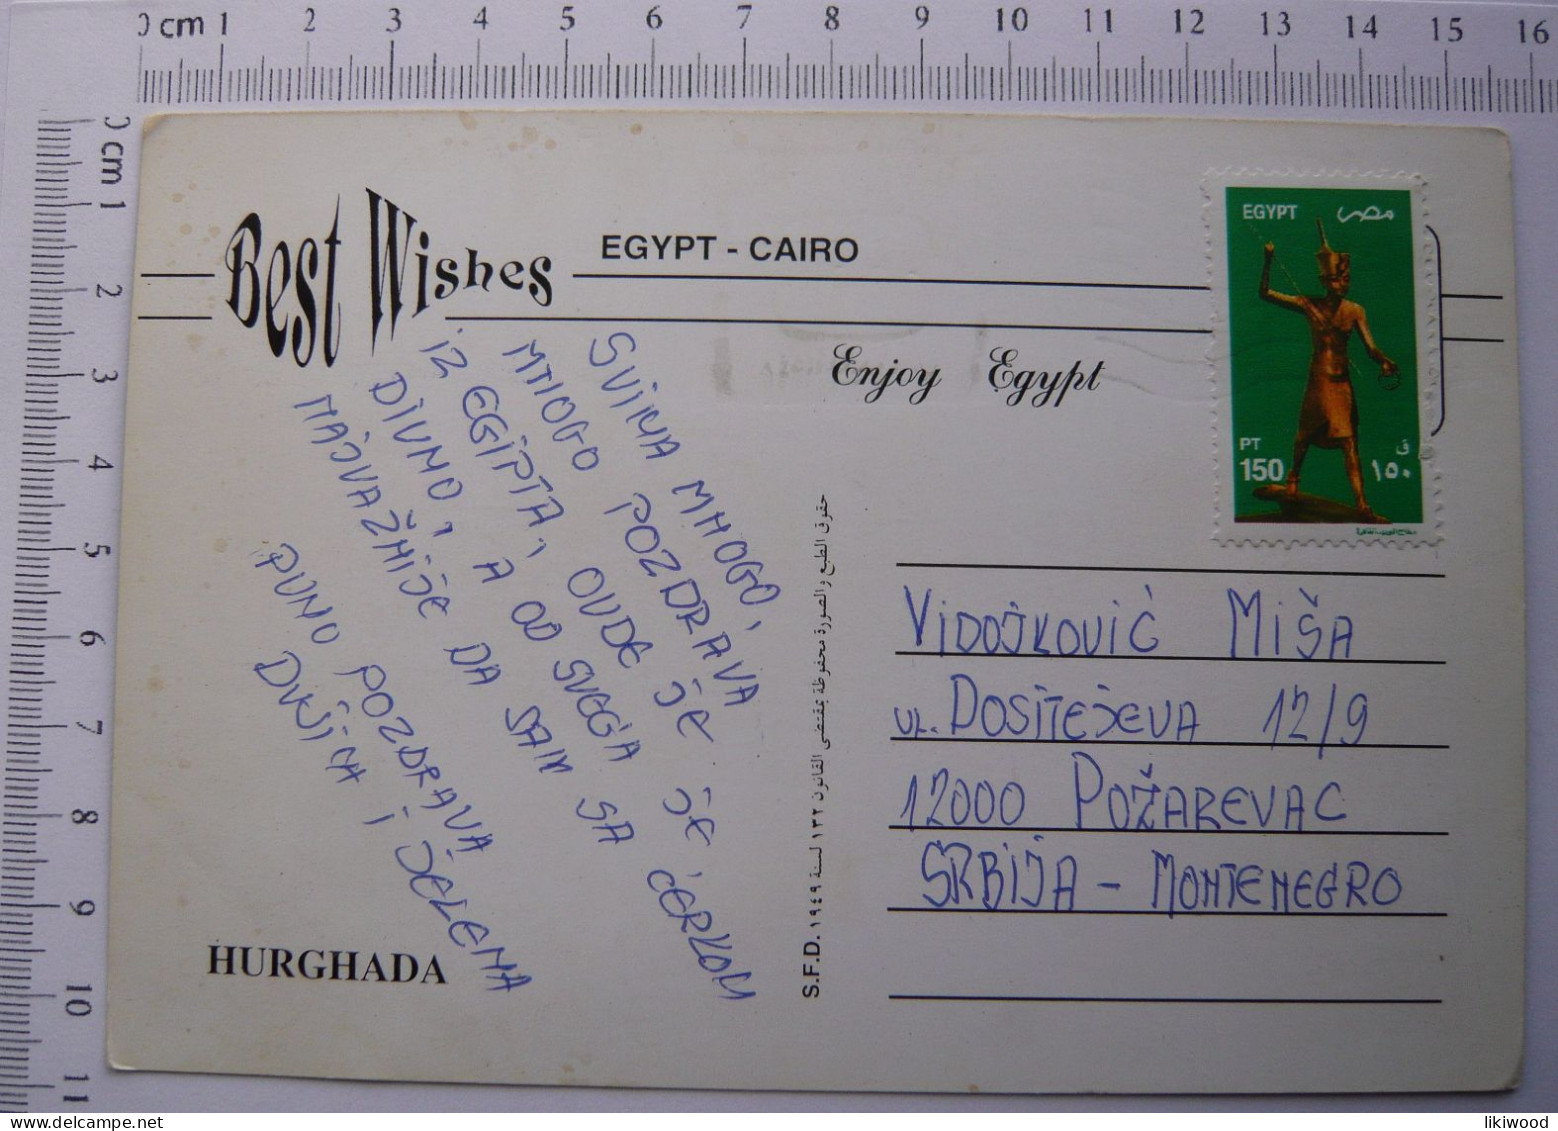 0 cm 1 2 3 4 5 6 7 8 9 10 11 12 13 14 15 16
0 cm 1 2 3 4 5 6 7 8 9 10 11
Best Wishes
EGYPT - CAIRO
Enjoy Egypt
EGYPT مصر
PT ق
150 ١٥٠
SVIMA MNOGO,
MNOGO POZDRAVA
IZ EGIPTA, OVDE JE
DIVNO, A OD SVEGA JE
NAJVAŽNIJE DA SAM SA ĆERKOM
PUNO POZDRAVA
DUŠICA I JELENA
HURGHADA
S.F.D. حقوق الطبع والصورة محفوظة بمقتضى القانون ١٣٢ لسنة ١٩٤٩
VIDOJKOVIĆ MIŠA
UL. DOSITEJEVA 12/9
12000 POŽAREVAC
SRBIJA - MONTENEGRO
likiwood